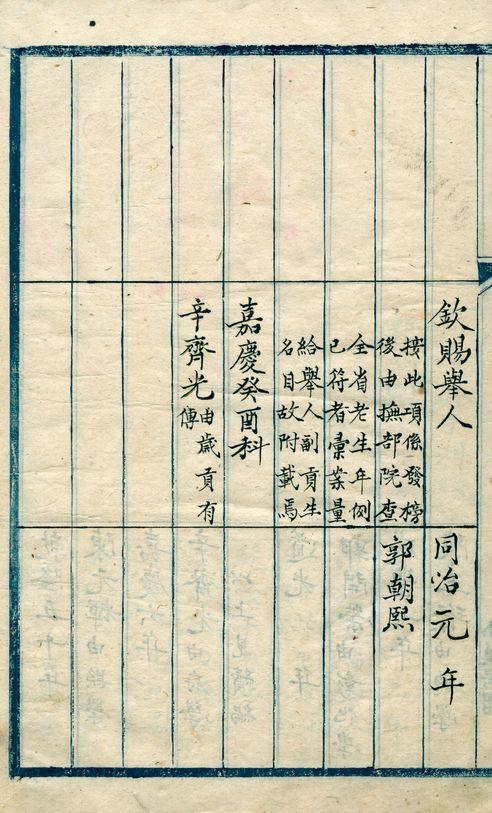 欽賜舉人
按此項係發榜
後由撫部院查
全省老生年例
已符者彙案量
給舉人副貢生
名目故附載焉
嘉慶癸酉科
辛齊光由歲貢有
傳
同治元年
郭朝熙